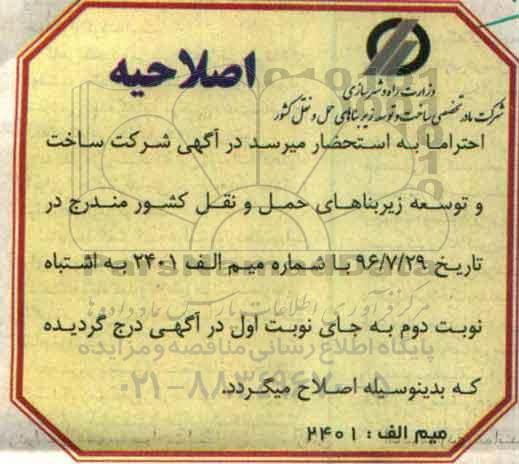 اصلاحیه
وزارت راه و شهرسازی
شرکت مادر تخصصی ساخت و توسعه زیربناهای حمل و نقل کشور
احتراما به استحضار میرسد در آگهی شرکت ساخت
و توسعه زیربناهای حمل و نقل کشور مندرج در
تاریخ ۹۶/۷/۲۹ با شماره میم الف ۲۴۰۱ به اشتباه
مرکز فرآوری اطلاعات پارس نماد داده ها
نوبت دوم به جای نوبت اول در آگهی درج گردیده
پایگاه اطلاع رسانی مناقصه و مزایده
که بدینوسیله اصلاح میگردد.
میم الف : ۲۴۰۱